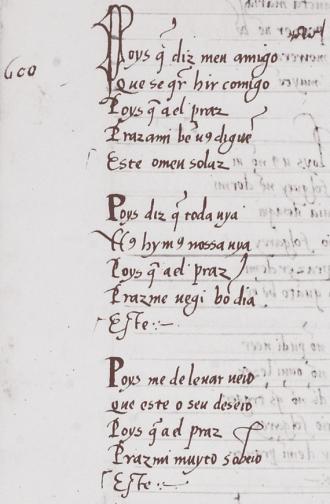 600
Poys q̃ diz meu amigo
Que se qr̃ hir comigo
Poys q̃ a el praz
Praz a mi bẽ uꝯ digue
Este o meu solaz
Poys diz q̃ toda uya
Nꝯ hymꝯ nossa uya
Poys q̃ a el praz
Prazme uegi bõ dia
Este :~
Poys me de leuar ueio
que este o seu deseio
Poys q̃ a el praz
Praz mi muyto sobeio
Este :~